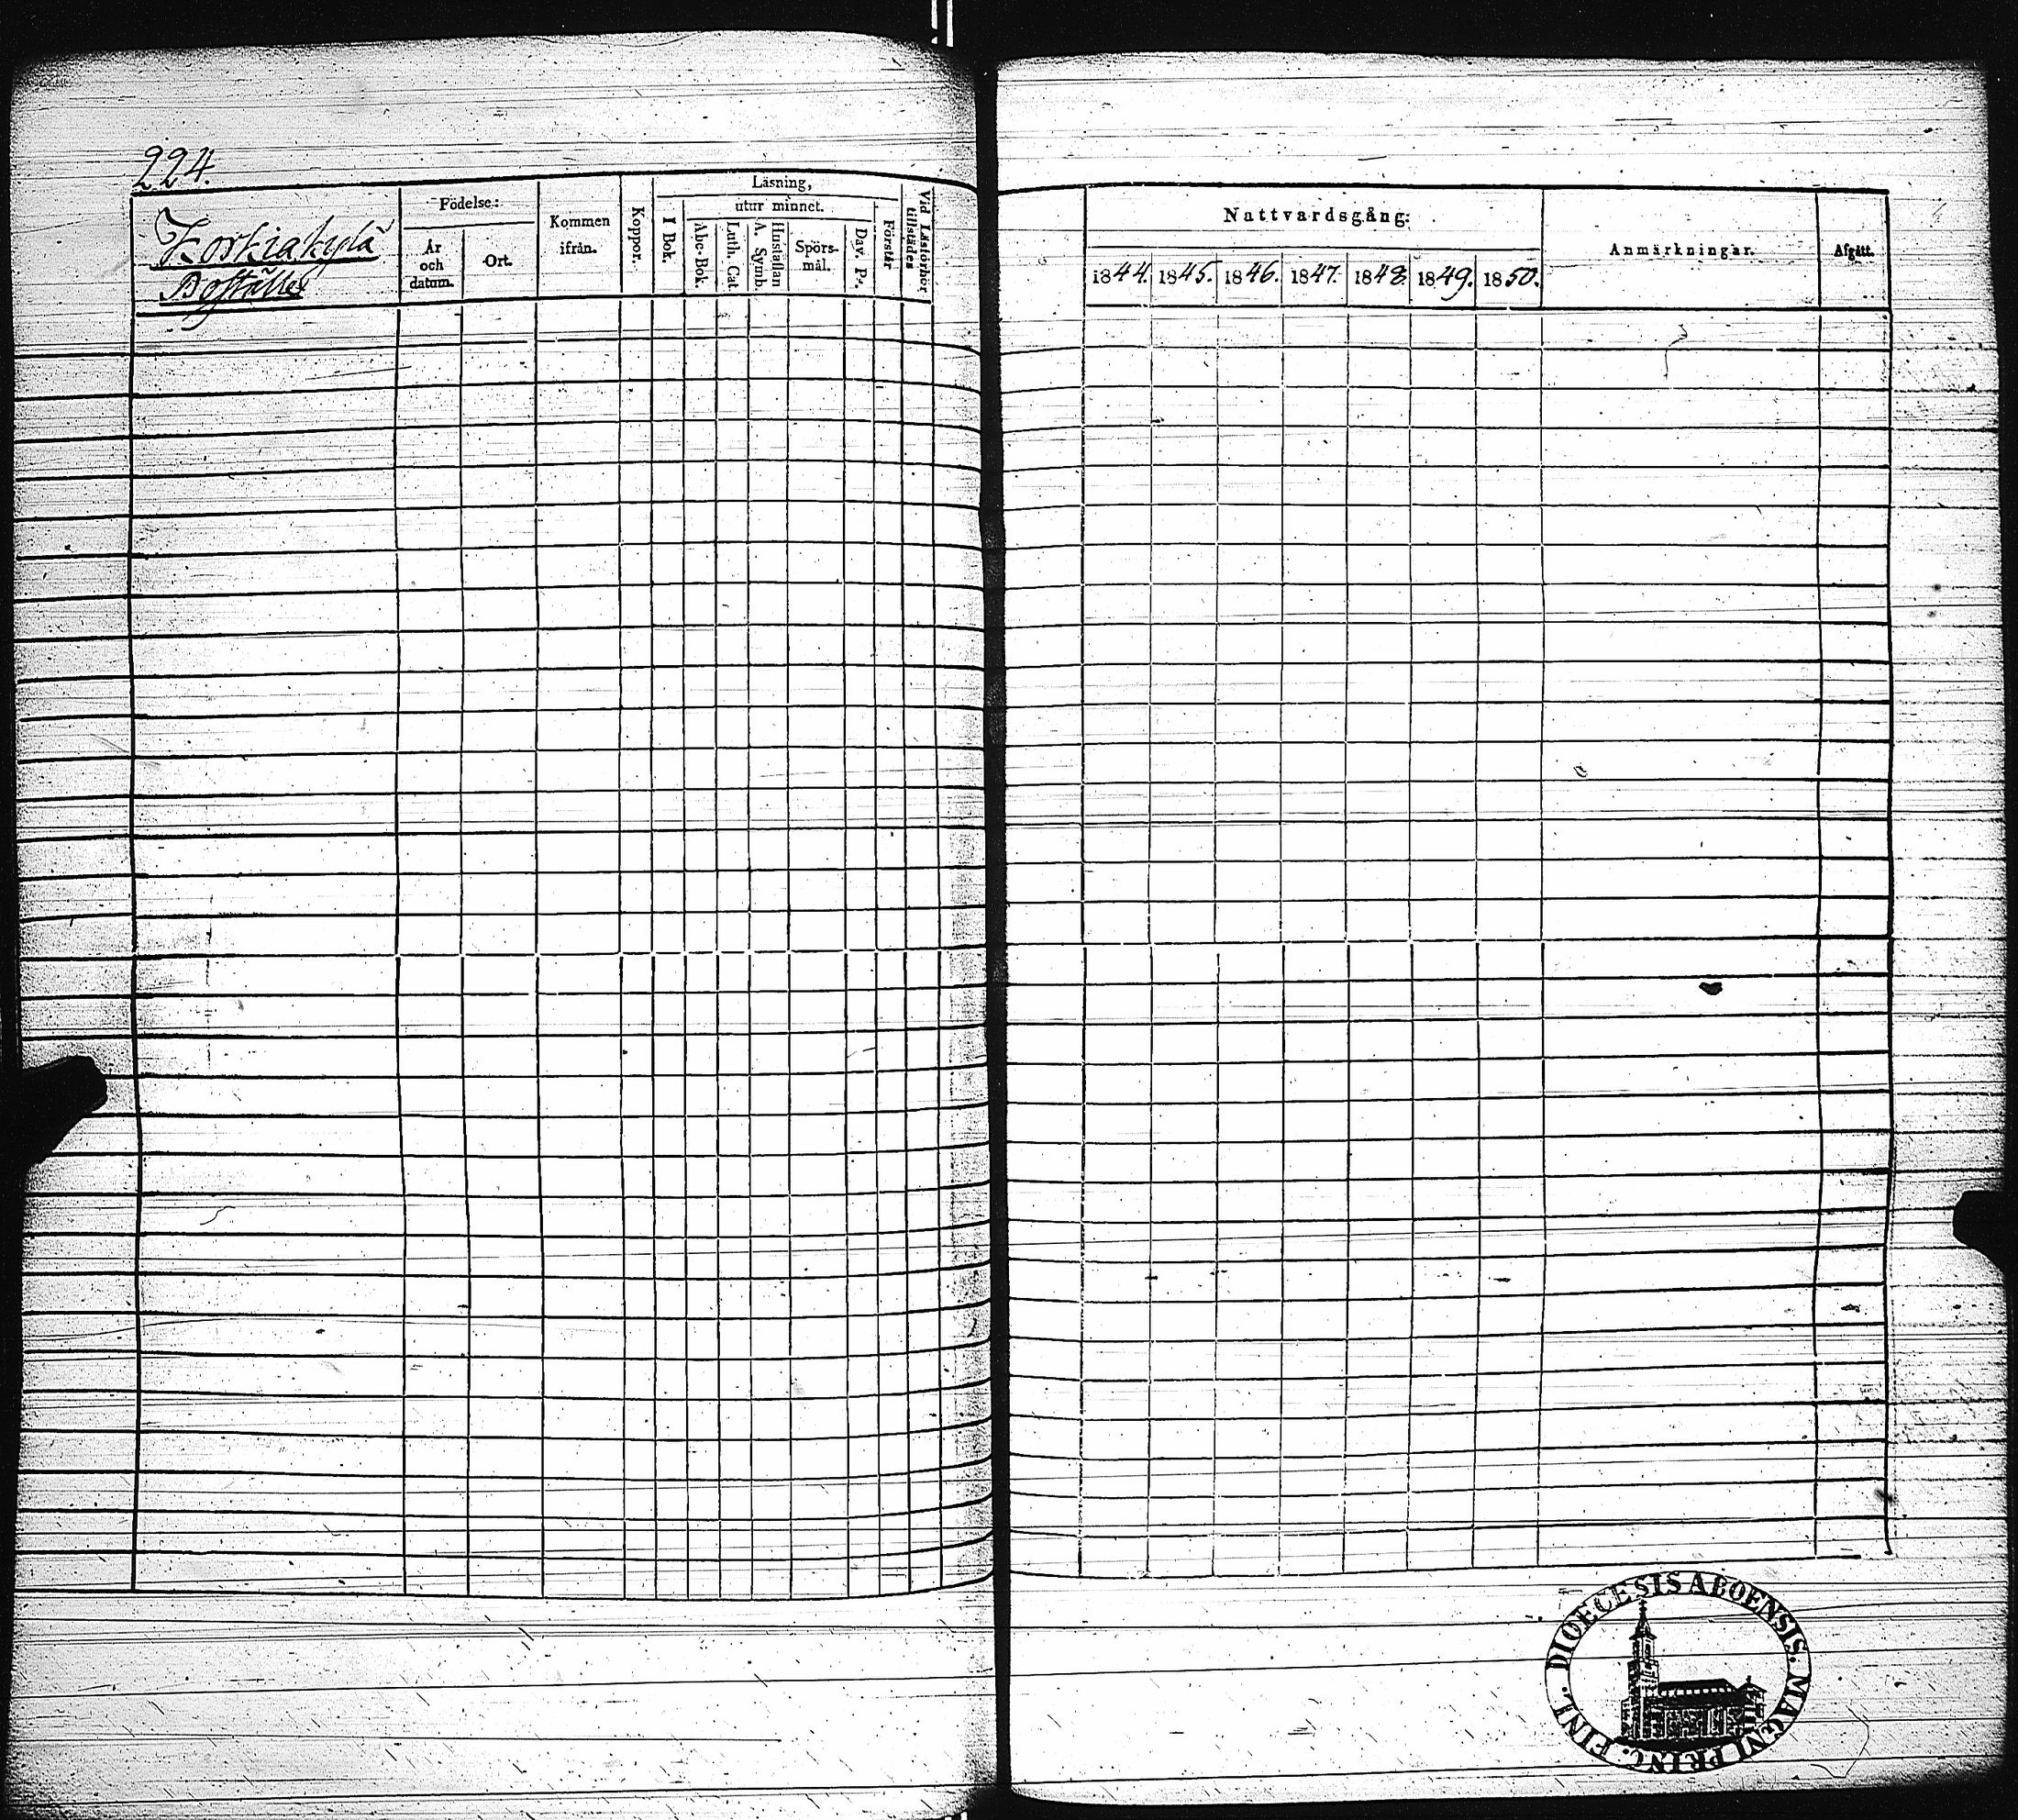 224.
Korkiakylä
Boställe
Födelse:
År
och
datum.
Ort.
Kommen
ifrån.
Koppor.
Läsning,
I Bok.
utur minnet.
Abc-Bok.
Luth. Cat.
Hustaflan
A. Symb.
Spörs-
mål.
Dav. Ps.
Förstår
Vid Läsförhör
tillstädes
Nattvardsgång:
1844.
1845.
1846.
1847.
1848.
1849.
1850.
Anmärkningar.
Afgått.
DIOECESIS ABOENSIS. MAGNI PRINC. FINL.